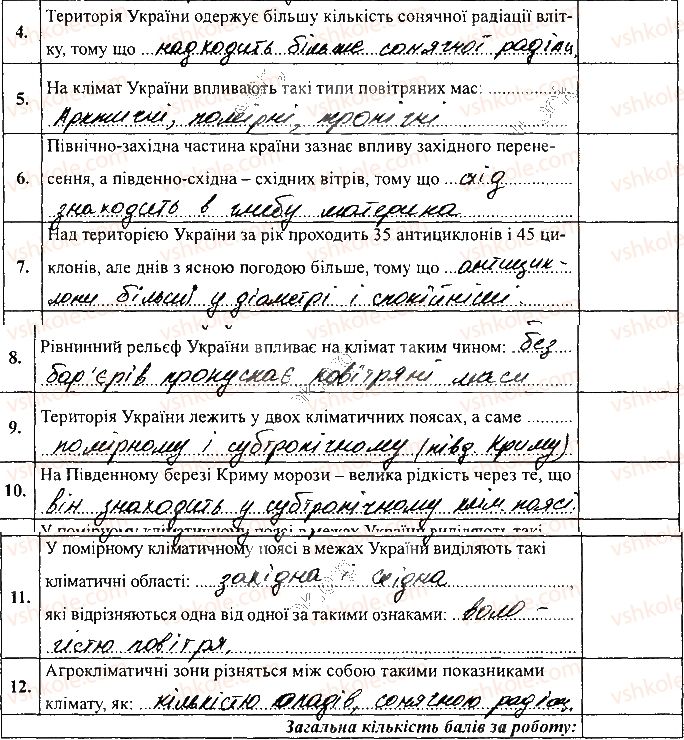 4. Територія України одержує більшу кількість сонячної радіації вліт-
ку, тому що надходить більше сонячної радіац.
5. На клімат України впливають такі типи повітряних мас:
Арктичні, помірні, тропічні
6. Північно-західна частина країни зазнає впливу західного перене-
сення, а південно-східна – східних вітрів, тому що схід
знаходить в глибу материка
7. Над територією України за рік проходить 35 антициклонів і 45 ци-
клонів, але днів з ясною погодою більше, тому що антицик-
лони більші у діаметрі і спокійніші.
8. Рівнинний рельєф України впливає на клімат таким чином: без
бар'єрів пропускає повітряні маси
9. Територія України лежить у двох кліматичних поясах, а саме
помірному і субтропічному (півд. Криму)
10. На Південному березі Криму морози – велика рідкість через те, що
він знаходить у субтропічному клім поясі
У помірному кліматичному поясі в межах України виділяють такі
11. У помірному кліматичному поясі в межах України виділяють такі
кліматичні області: західна і східна
які відрізняються одна від одної за такими ознаками: воло-
гістю повітря.
12. Агрокліматичні зони різняться між собою такими показниками
клімату, як: кількістю опадів, сонячною радіац.
Загальна кількість балів за роботу: